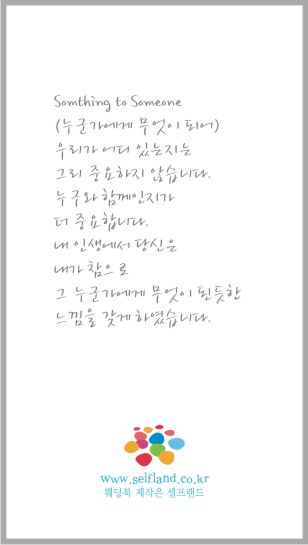 Somthing to Someone
(누군가에게 무엇이 되어)
우리가 어디 있는지는
그리 중요하지 않습니다.
누구와 함께인지가
더 중요합니다.
내 인생에서 당신은
내가 참으로
그 누군가에게 무엇이 된듯한
느낌을 갖게 하였습니다.
www.selfland.co.kr
웨딩북 제작은 셀프랜드